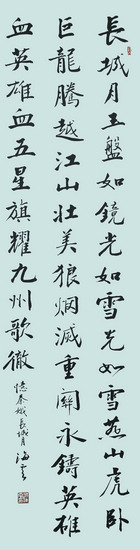 長城月玉盤如鏡光如雪光如雪燕山虎卧
巨龍騰越江山壯美狼烟滅重關永鑄英雄
血英雄血五星旗耀九州歌徹
憶秦娥長城月 海云